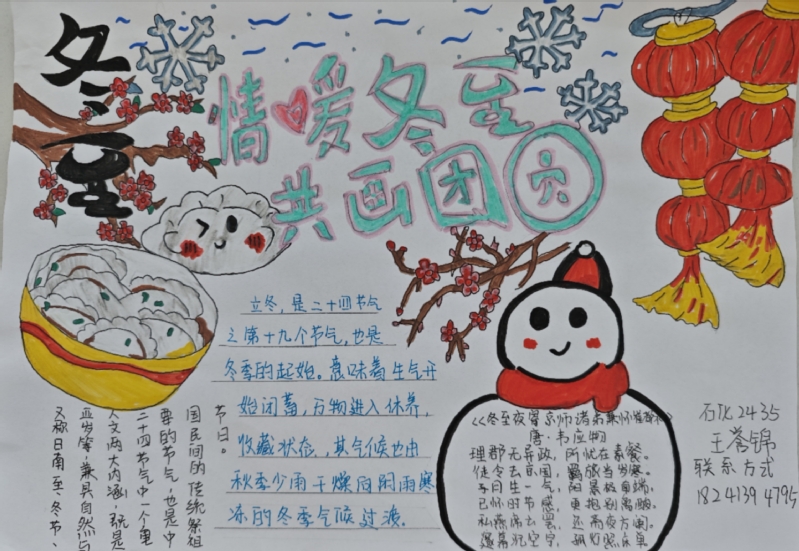 冬至
情暖冬至
共画团穴
立冬，是二十四节气
之第十九个节气，也是
冬季的起始。意味着生气开
始闭蓄，万物进入休养，
收藏状态，其气候也由
秋季少雨干燥向阴雨寒
冻的冬季气候过渡。
又称日南至、冬节、
亚岁等，兼具自然与
人文两大内涵，既是
二十四节气中一个重
要的节气，也是中
国民间的传统祭祖
节日。
唐·韦应物
理郡无异政，所忧在素餐。
徒令去京国，羁旅当岁寒。
子月生一气，阳景极南端。
已怀时节感，更抱别离酸。
石化2435
王誉锦
联系方式
18241394795